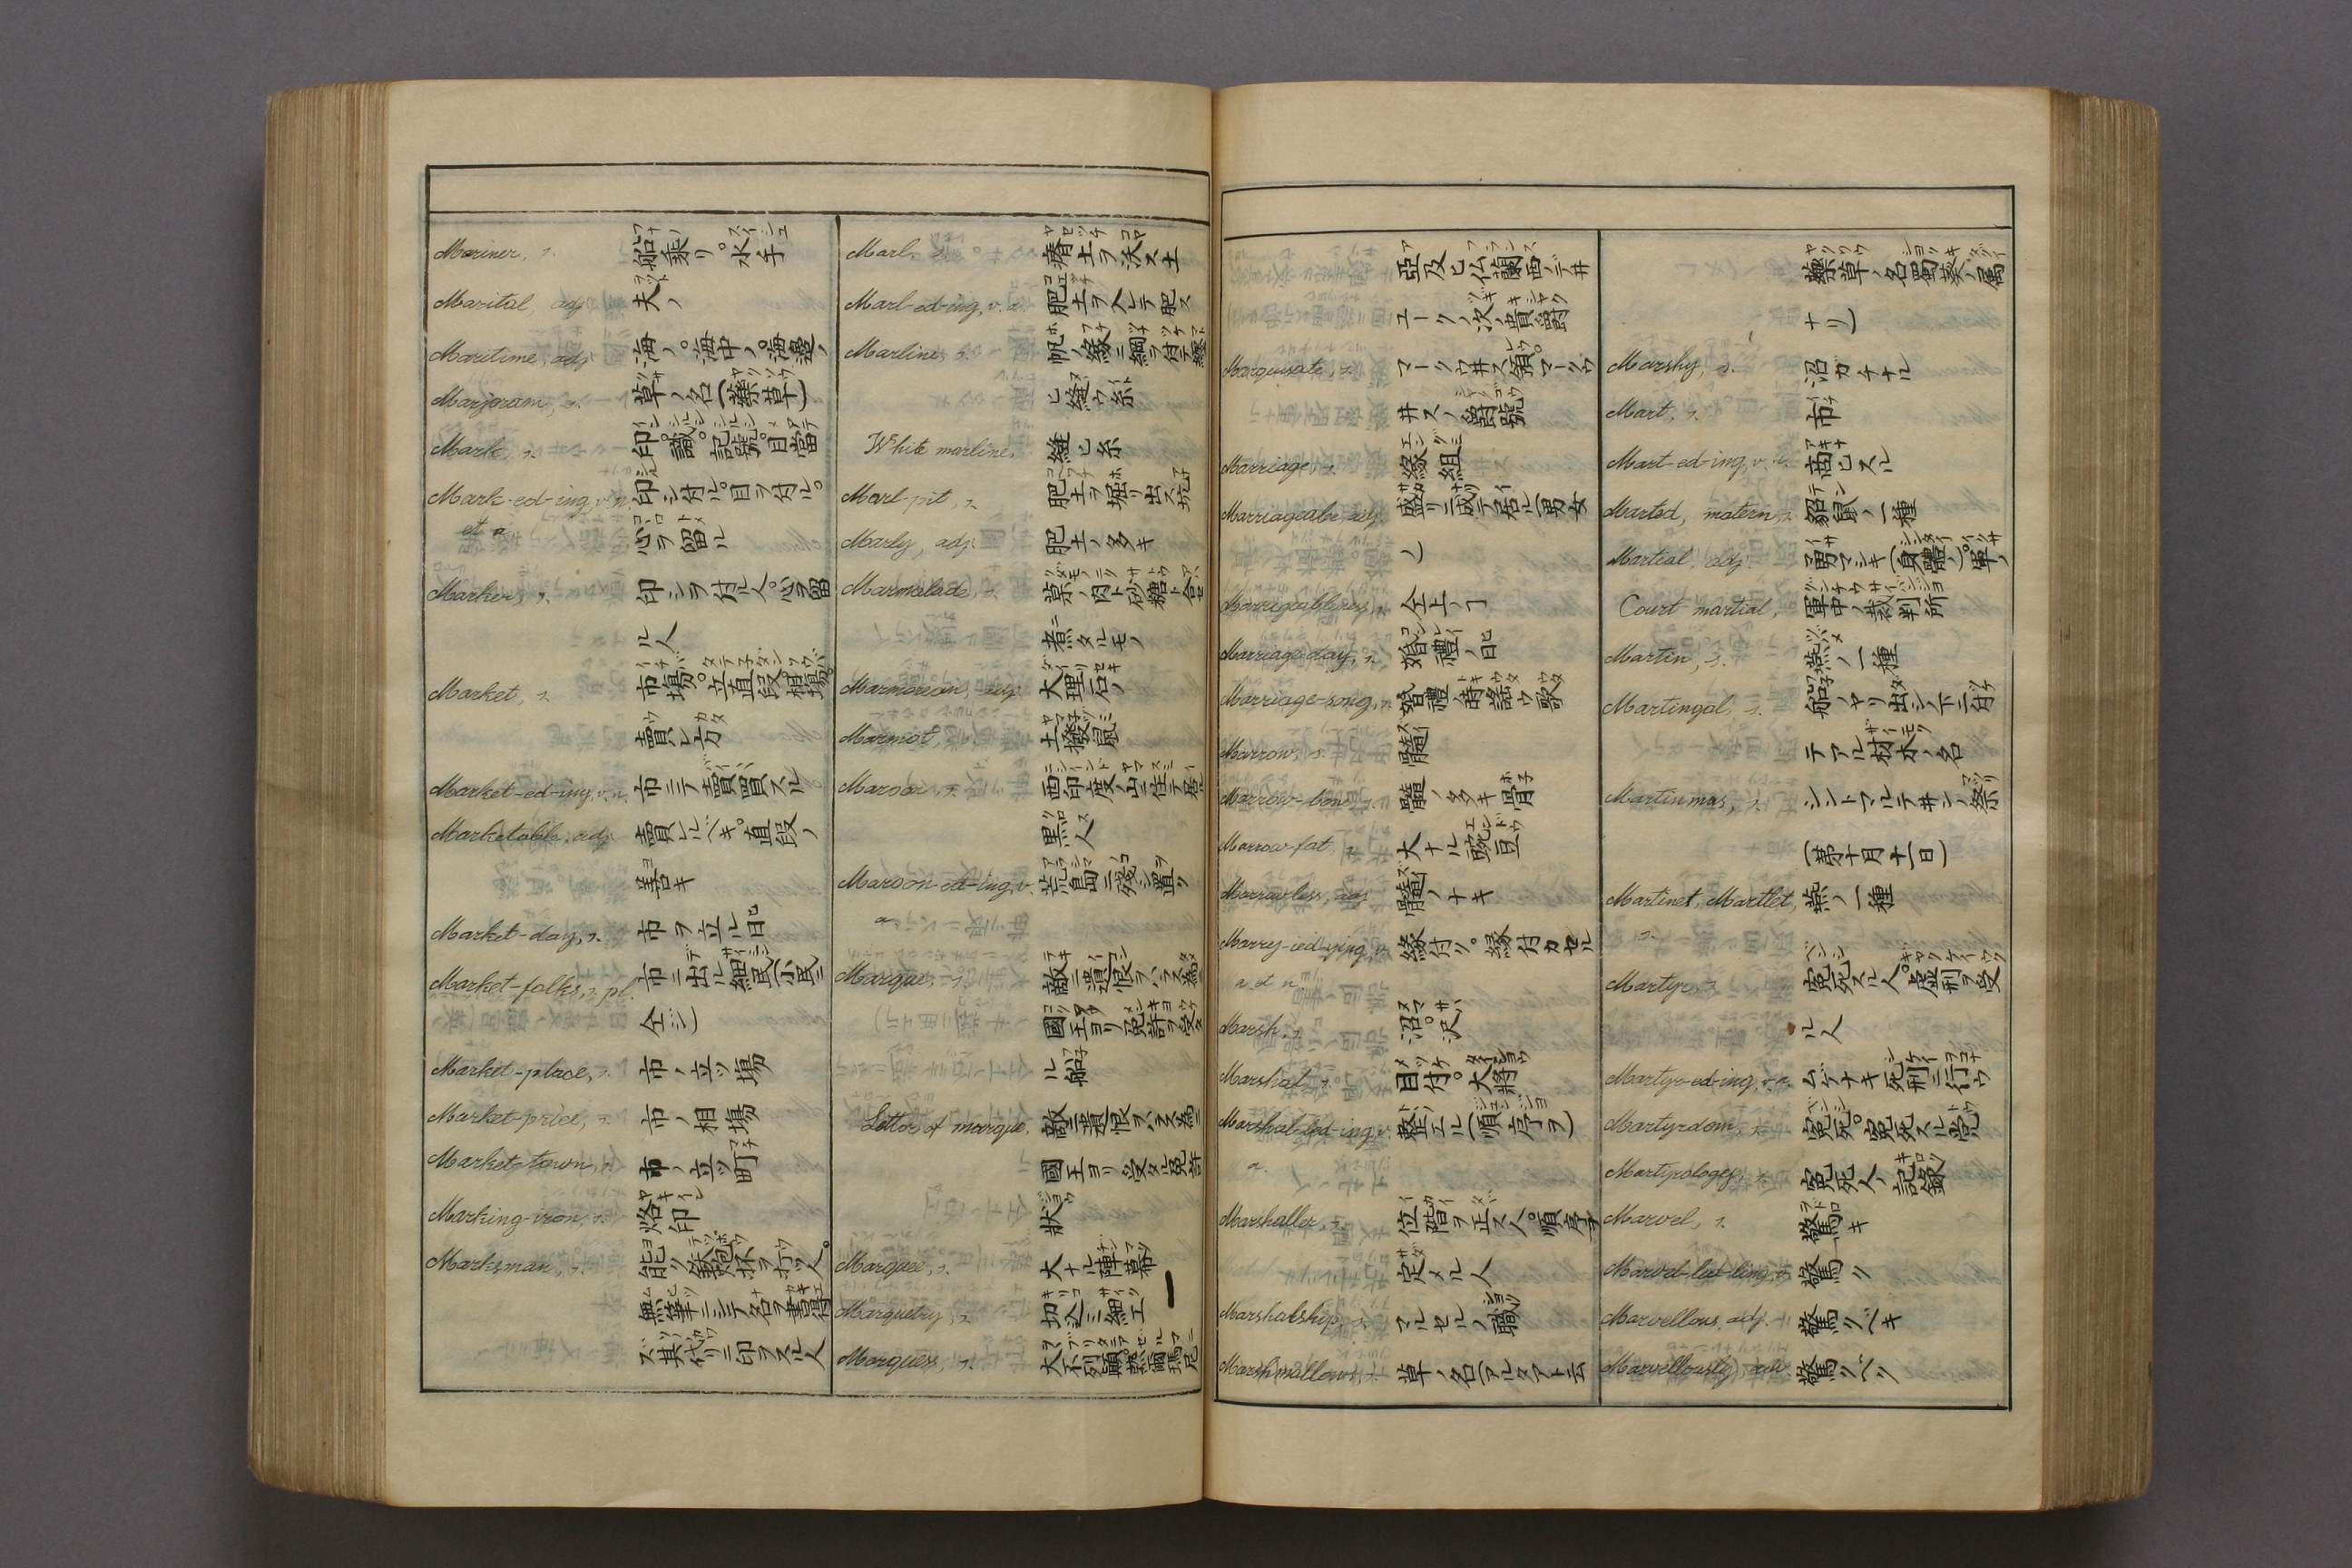 Mariner, s. 船乗リ。水手
Marital, adj. 夫ノ
Maritime, adj. 海ノ。海中ノ。海邊ノ
Marjoram, s. 草ノ名(藥草)
Mark, s. 印。識。記號。目當
Mark-ed-ing, v. n. 印シ付ル。目ヲ付ル。
et a. 心ヲ留ル
Marker, s. 印シヲ付ル人。心ヲ留
ル人
Market, s. 市場。立直段。相場。
賣レ方
Market-ed-ing, v. n. 市ニテ賣買スル
Marketable, adj. 賣レルベキ。直段ノ
善キ
Market-day, s. 市ヲ立ル日
Market-folks, s. pl. 市ニ出ル細民(小民ニ
仝ジ)
Market-place, s. 市ノ立ツ場
Market-price, s. 市ノ相場
Market-town, s. 市ノ立ツ町
Marking-iron, s. 烙印
Marksman, s. 能ク鉄炮抔ヲ打ツ人。
無筆ニシテ名ヲ書得
ズ其代リニ印ヲスル人
Marl, s. 瘠土ヲ沃ス土
Marl-ed-ing, v. a. 肥土ヲ入レテ肥ス
Marline, s. 帆ノ縁ニ綱ヲ付テ纏
ヒ縫ウ糸
White marline, 縫ヒ糸
Marl-pit, s. 肥土ヲ堀リ出ス坑
Marly, adj. 肥土ノ多キ
Marmalade, s. 菓ノ肉ト砂糖ト合セ
煮タルモノ
Marmorean, adj. 大理石ノ
Marmot, s. 土撥鼠
Maroon, s. 西印度ノ山ニ住テ居
黒人
Maroon-ed-ing, v. 荒島ニ殘シ置ク
a.
Marque, s. 敵ニ遺恨ヲハラス為ニ
國王ヨリ免許ヲ受タ
ル船
Letter of marque, 敵ニ遺恨ヲハラス為ニ
國王ヨリ受タル免許
狀
Marquee, s. 大ナル陣幕
Marquetry, s. 切込ミ細工
Marquess, s. 大不列顛。熱爾瑪尼
亞及ヒ仏蘭西ノデ井
ユークノ次ノ貴爵
Marquisate, s. マークウ井ス領。マークウ
井スノ爵號
Marriage, s. 縁組
Marriageable, adj. 盛リニ成テ居ル(男女
ノ)
Marriageableness, s. 仝上ノヿ
Marriage-day, s. 婚禮ノ日
Marriage-song, s. 婚禮ノ時謡ウ歌
Marrow, s. 髓
Marrow-bone, s. 髓ノ多キ骨
Marrow-fat, s. 大ナル豌豆
Marrowless, adj. 髓ノナキ
Marry-ied-ying, v. 縁付ク。縁付カセル
a. et n.
Marsh, s. 沼。沢
Marshal, s. 目付。大將
Marshal-led-ing, v. 整エル(順序ヲ)
a.
Marshaller, s. 位階ヲ正ス人。順序ヲ
定メル人
Marshalship, s. マルセルノ職
Marshmallow, s. 草ノ名(アルタアト云
藥草ノ名蜀葵ノ属
ナリ)
Marshy, s. 沼ガチナル
Mart, s. 市
Mart-ed-ing, v. n. 商ヒスル
Marted, matern, s. 貂鼠ノ一種
Martial, adj. 勇マシキ(身體ノ)。軍ノ
Court martial, 軍中ノ裁判所
Martin, s. 燕ノ一種
Martingal, s. 船ノヤリ出シノ下ニ付
テアル材木ノ名
Martinmas, s. シントマルテ井ンノ祭
(第十一月十一日)
Martinet, Martlet, 燕ノ一種
s.
Martyr, s. 寃死スル人。虐刑ヲ受
ル人
Martyr-ed-ing, v. a. ムゲナキ死刑ニ行ウ
Martyrdom, s. 寃死。寃死スルヿ
Martyrology, s. 寃死人ノ記錄
Marvel, s. 驚キ
Marvel-led-ling, v. 驚ク
Marvellous, adj. 驚クベキ
Marvellously, adv. 驚クベク